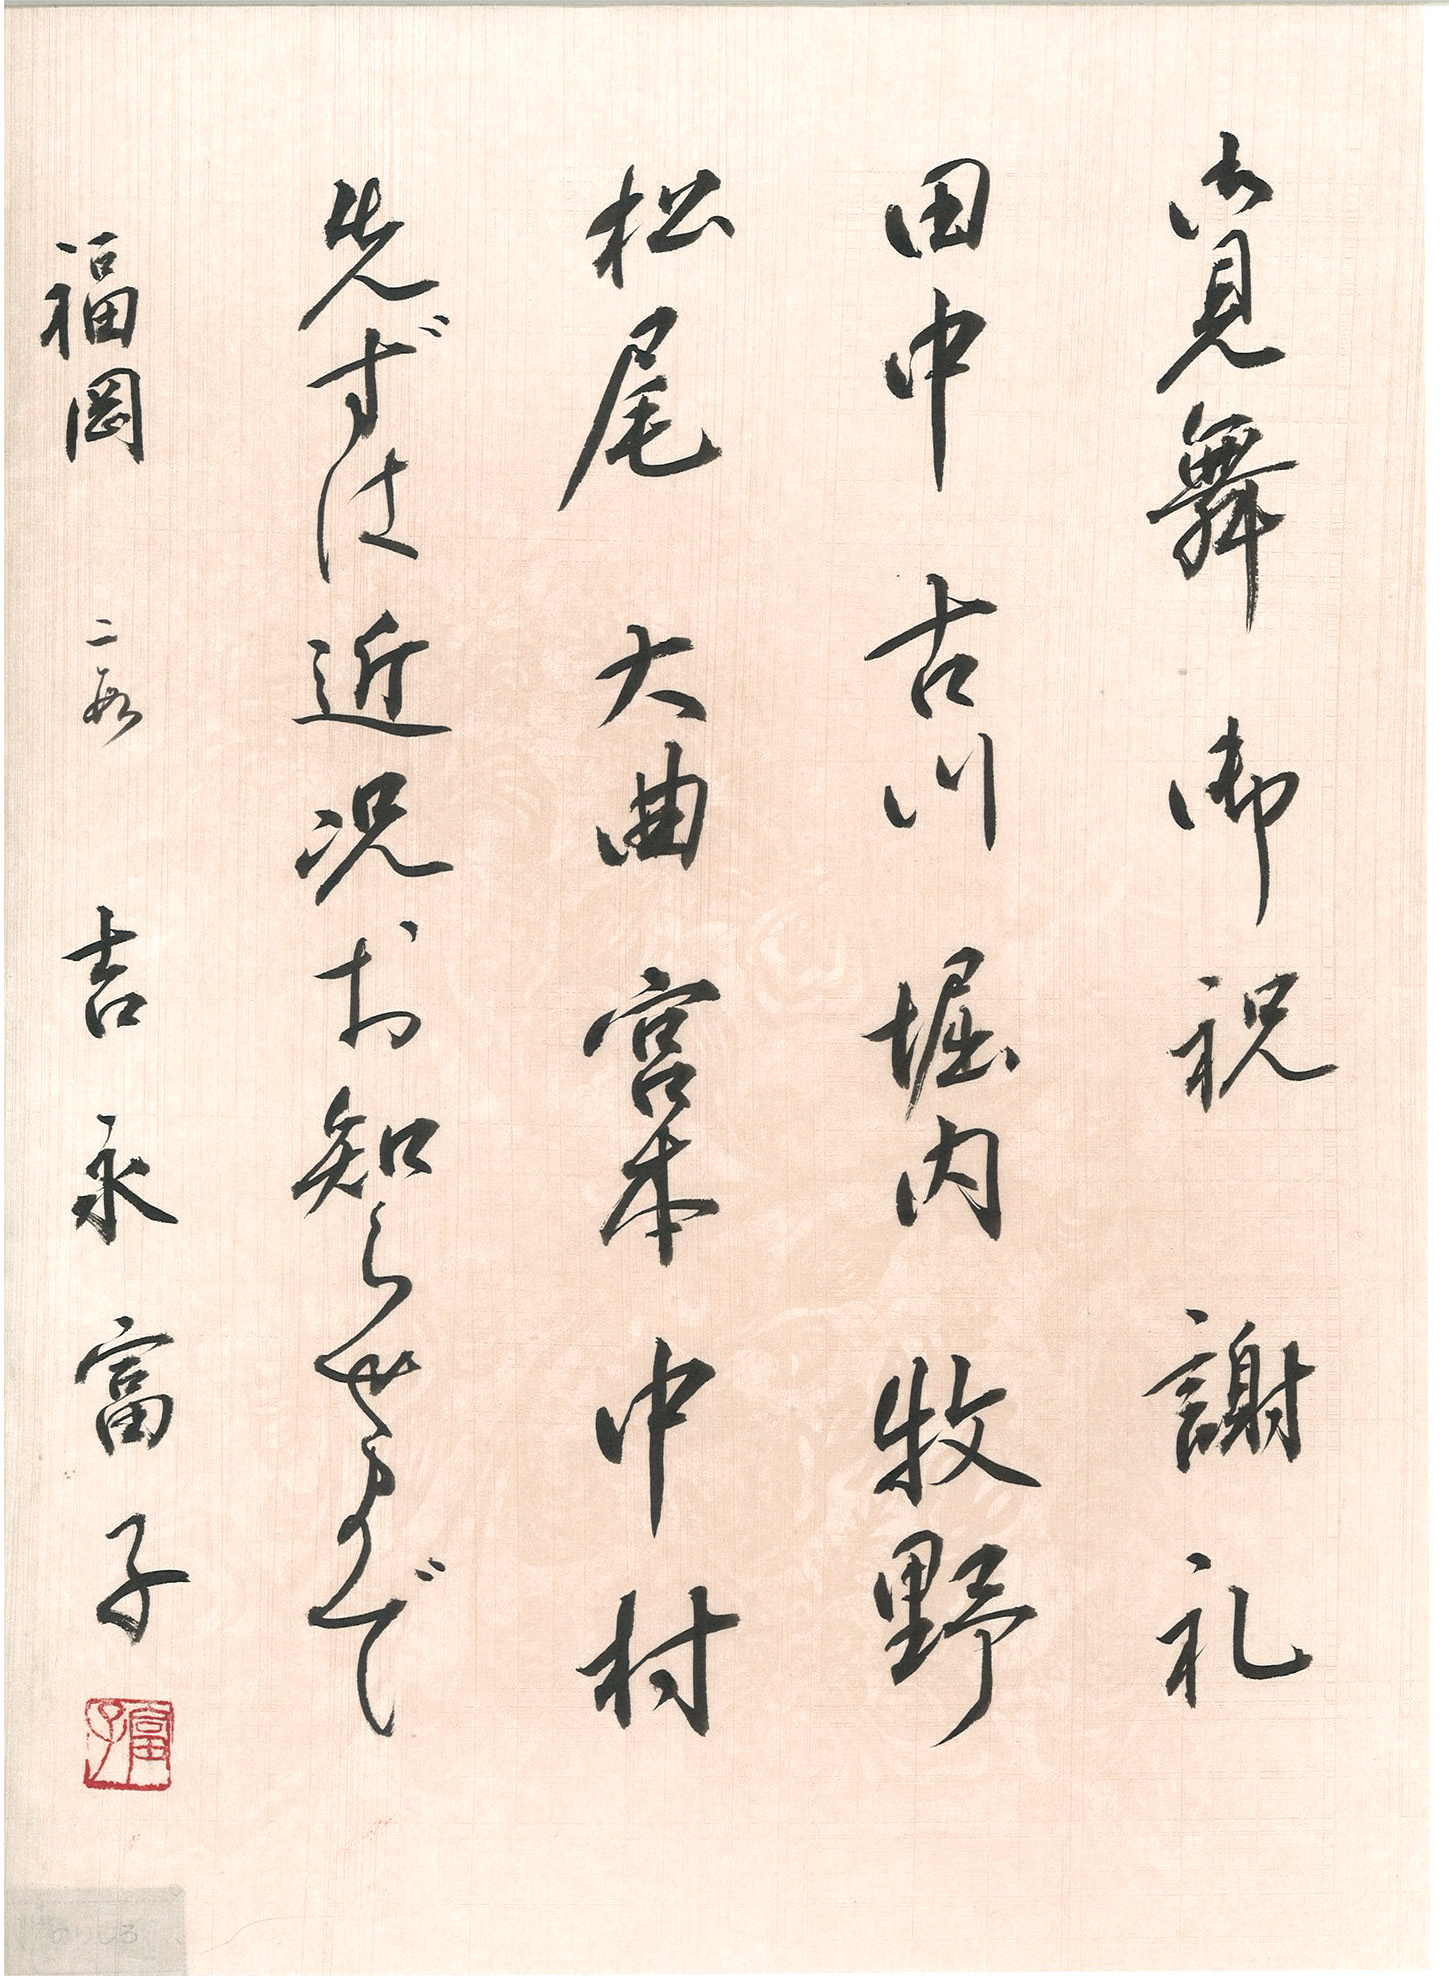 お見舞 御祝 謝礼
田中 古川 堀内 牧野
松尾 大曲 宮本 中村
先ずは近況お知らせまで
福岡 二段 吉永富子
富子
のりしろ